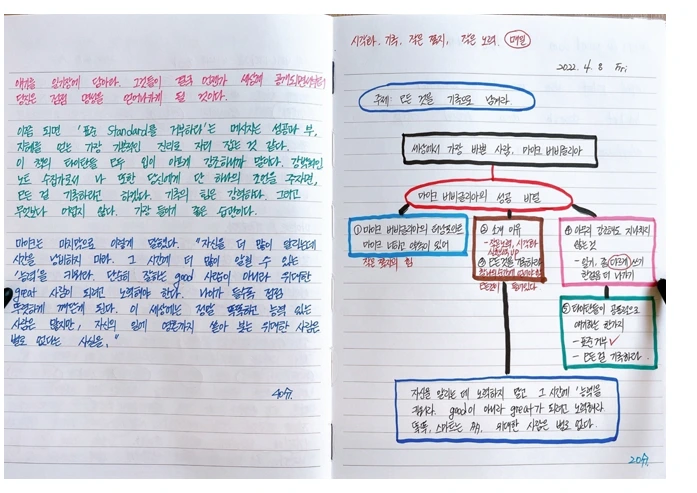 얘기를 일기장에 담아라. 그것들이 결국 언젠가 세상에 공개되면
당신은 점점 명망을 얻어나가게 될 것이다."
이쯤 되면 '표준 Standard을 거부하다'는 메시지는 성공과 부,
지혜를 얻는 가장 기본적인 진리로 자리 잡은 것 같다.
이 책의 타이탄들 모두 입이 아프게 강조하니까 말이다. 강박적인
노트 수집가로서 나 또한 당신에게 단 하나의 조언을 주자면,
모든 걸 기록하라고 하겠다. 기록의 힘은 강력하다. 그리고
무엇보다 어렵지 않다. 가장 들이기 좋은 습관이다.
마이크는 마지막으로 이렇게 말했다. "자신을 더 많이 알리는데
시간을 낭비하지 마라. 그 시간에 더 많이 알릴 수 있는
'능력'을 키워라. 단순히 잘하는 good 사람이 아니라 위대한
great 사람이 되려고 노력해야 한다. 나이가 들수록 점점
뚜렷하게 깨닫게 된다. 이 세상에는 정말 똑똑하고 능력 있는
사람은 많지만, 자신의 일에 영혼까지 쏟아 붓는 위대한 사람은
별로 없다는 사실을."
40쉬
시작하라, 기록, 작은 쪽지, 작은 노력 매일
2022. 4. 8 Fri
주제: 모든 것을 기록으로 남겨라.
세상에서 가장 바쁜 사람, 마이크 버비글리아
마이크 버비글리아의 성공 비밀
① 마이크 버비글리아의 책상 위에는
마이크 너라고 적혀 있어
작은 쪽지의 힘
② 소개 이유
- 작은노력, 시작하라
시행력 UP
③ 모든 것을 기록하라
모든것이 들어있다
④ 아무리 강조해도 지나치지
않는 것
- 일기, 꿈 이루게 쓰기
한걸음 더 나가기
⑤ 타이탄들이 공통적으로
얘기하는 한가지
- 표준 거부 ✓
- 모든 걸 기록하라
자신을 알리는 데 노력하지 말고 그 시간에 '능력'을
키워라. good이 아니라 great가 되려고 노력해라.
똑똑, 스마트는 多多. 위대한 사람은 별로 없다.
20쉬